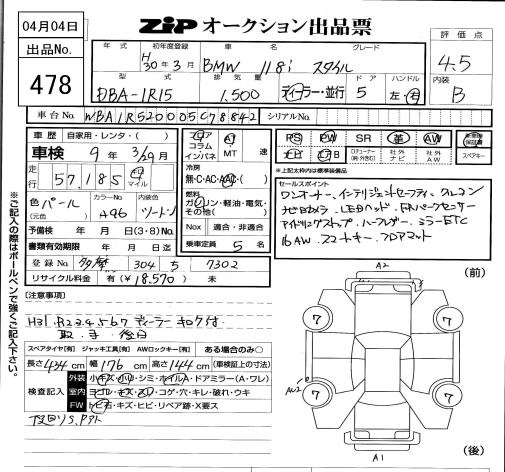 04月04日
出品No.
478
ZIP オークション出品票
評価点
4.5
内装
B
年式
初年度登録
車名
グレード
H30年3月
BMW 118i スタイル
型式
排気量
ドア
ハンドル
DBA-1R15
1.500
ディーラー・並行
5
左・右
車台No.
WBA1R520005C78842
シリアルNo.
車歴
自家用・レンタ・( )
車検 9年3/29月
走行
57.185
キロ
マイル
色 パール
(元色)
カラーNo.
A96
内装色
ツートン
予備検 年 月 日(3・8)No.
書類有効期限 年 月 日迄
登録No
多摩 304 5 7302
リサイクル料金 有(¥18.570) 未
フロア
コラム
インパネ
AT
MT
速
冷房
無・C・AC・AAC・( )
燃料
ガソリン・軽油・電気・
その他( )
Nox 適合・非適合
乗車定員 5 名
PS PW SR 革 AW
ナビ エアB
社外
ナビ
社外
AW
スペアキー
※上記太枠内は装備の保証有
セールスポイント
ワンオーナー、インテリジェントセーフティ クルコン
ナビBカメラ LEDヘッド FRパークセンサー
アイドリングストップ ハーフレザー ミラーETC
16AW スマートキー フロアマット
[注意事項]
H31.R2.3.4.5.6.7 ディーラーキロク付
取.手 後日
スペアタイヤ[有] ジャッキ工具[有] AWロックキー[有] ある場合のみ○
長さ434cm 幅176cm 高さ144cm (車検証上の寸法)
検査記入
外装 小キズ・小凹・シミ・ホイルA・ドアミラー(A・ワレ)
室内 ヨゴレ・キズ・スレ・コゲ・穴・キレ・破れ・ウキ
FW トビ石・キズ・ヒビ・リペア跡・X要ス
下回りS.アト
※ご記入の際はボールペンで強くご記入下さい。
A2
(前)
7
7
AC2
7
7
A1
(後)